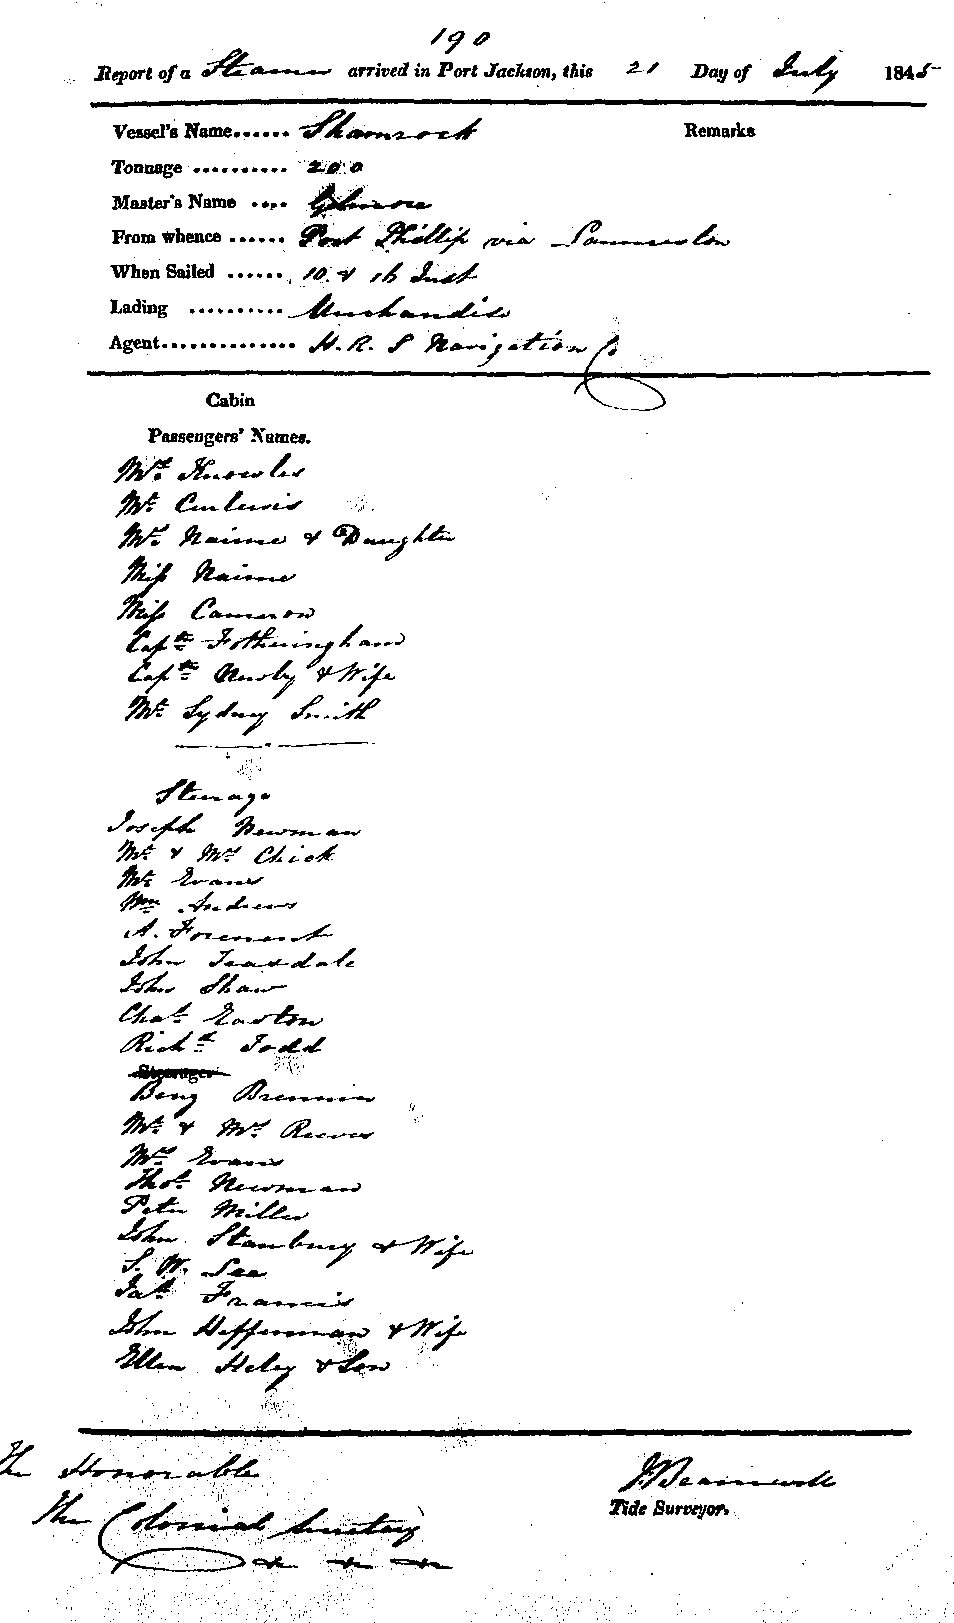 190
Report of a Steamer arrived in Port Jackson, this 21 Day of July 1845
Vessel's Name...... Shamrock Remarks
Tonnage .......... 200
Master's Name .... Gilmore
From whence ...... Port Phillip via Launceston
When Sailed ...... 10 & 16 Inst
Lading .......... Merchandise
Agent.............. H. R. S Navigation Co
Cabin
Passengers' Names.
Mrs Knowles
Mr Curlewis
Mrs Nairne & Daughter
Miss Nairne
Miss Cameron
Captn Fotheringham
Captn Newby & Wife
Mr Sydney Smith
Steerage
Joseph Newman
Mr & Mrs Chick
Mr Evans
Wm Andrews
A. Forement
John Teasdale
John Shaw
Chas Easton
Richd Todd
Steerage
Benj Brennin
Mr & Mrs Reeves
Mrs Evans
Thos Newman
Peter Miller
John Stanbury & Wife
S. W. See
Jas Francis
John Heffernnan & Wife
Ellen Heley & Son
The Honorable
The Colonial Secretary
&c &c &c
Tide Surveyor.